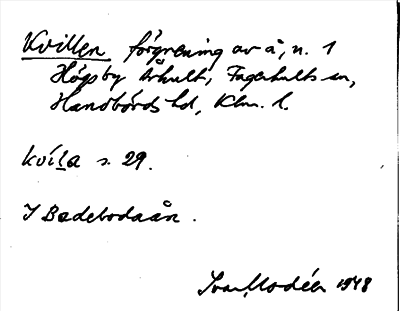 Kvillen förgrening av å, n. 1
Högsby Århult, Fagerhults sn,
Handbörds hd, Klm. l.
kvil̲a s. 29.
I Badebodaån.
Ivar Modéer 1948